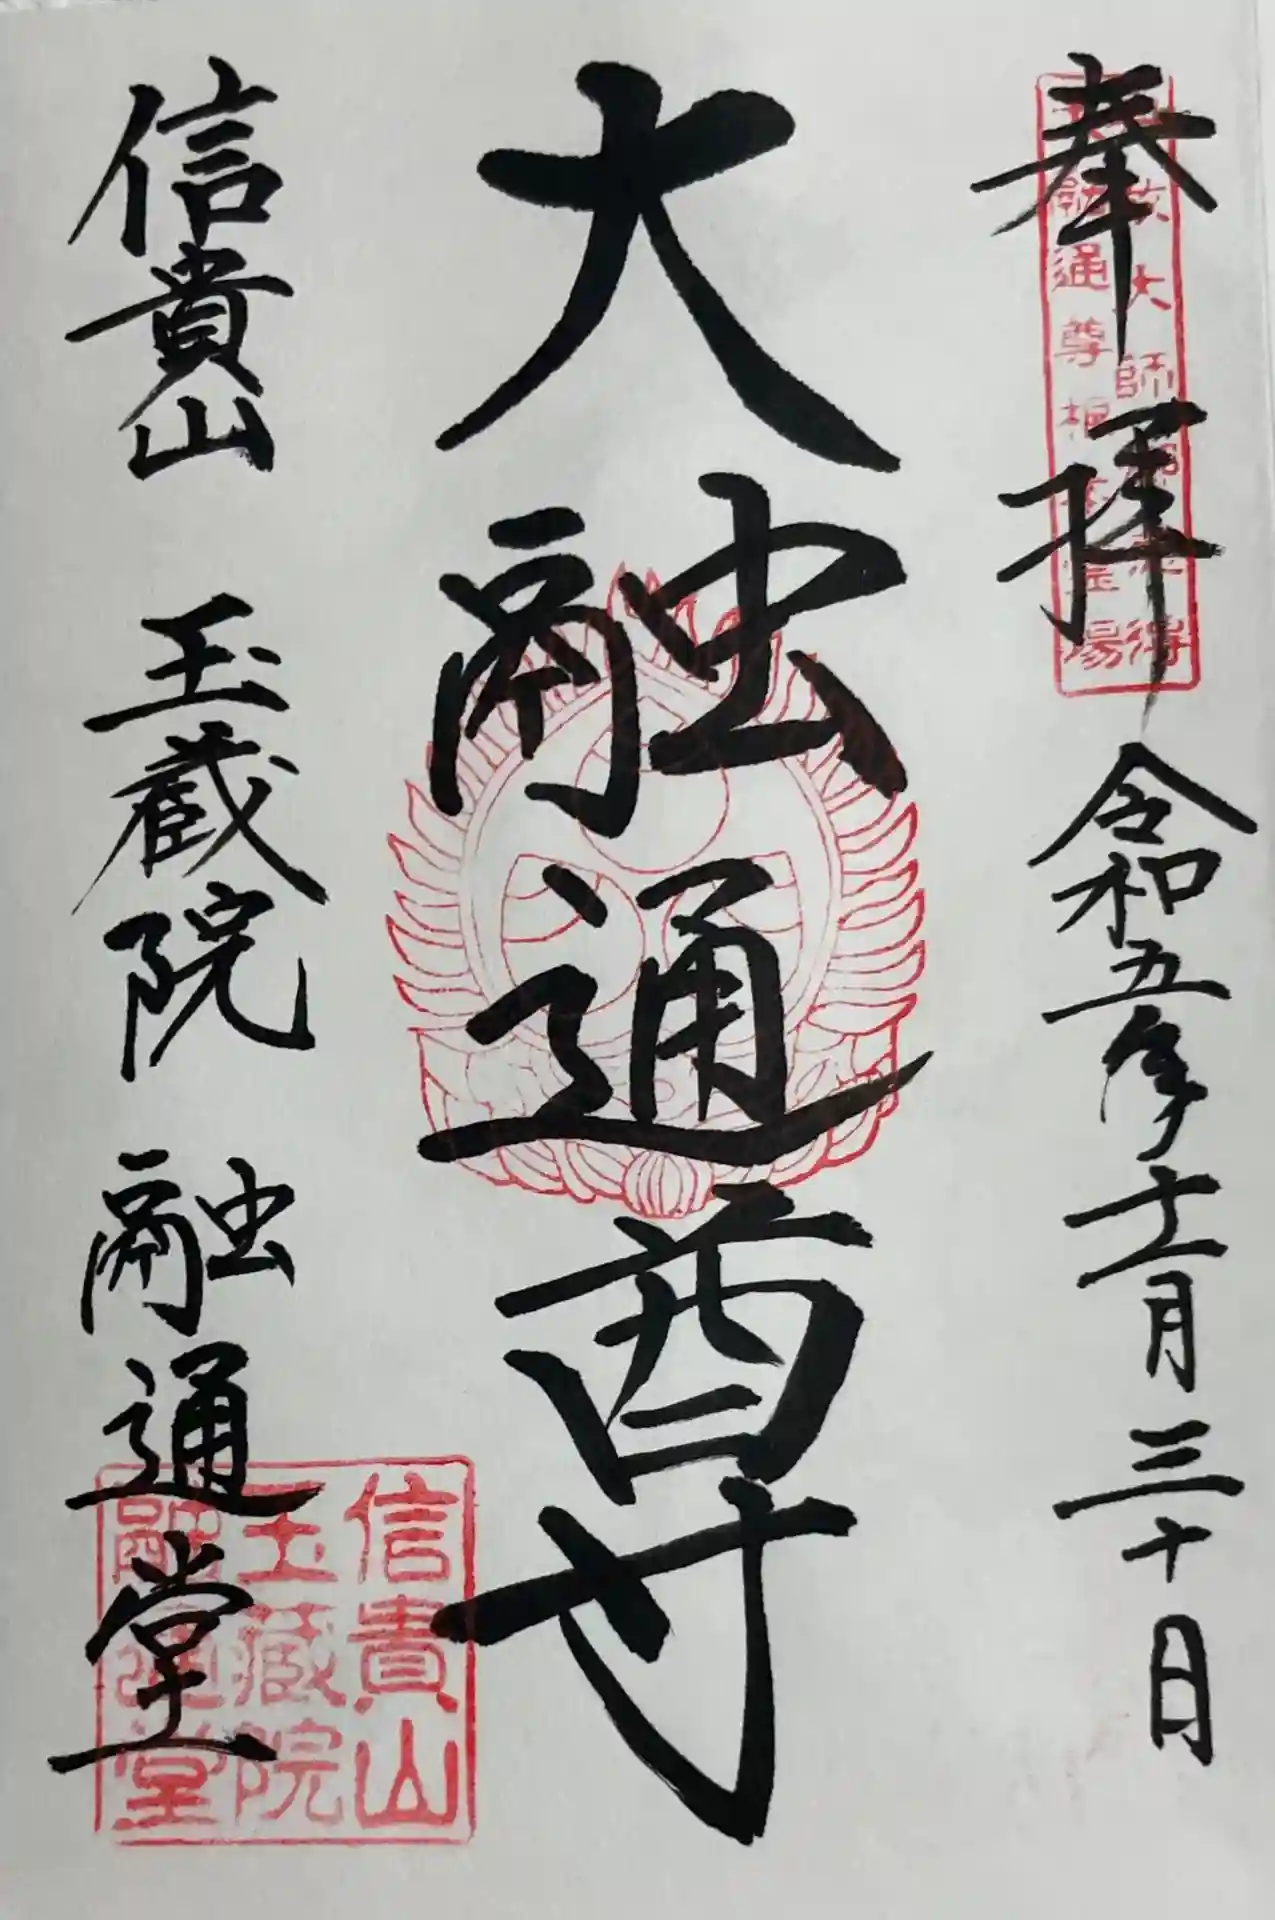 奉拝 令和五年十一月三十日
大師
融通尊根本霊場
大融通尊
信貴山 玉蔵院 融通堂
信貴山
玉蔵院
融通堂